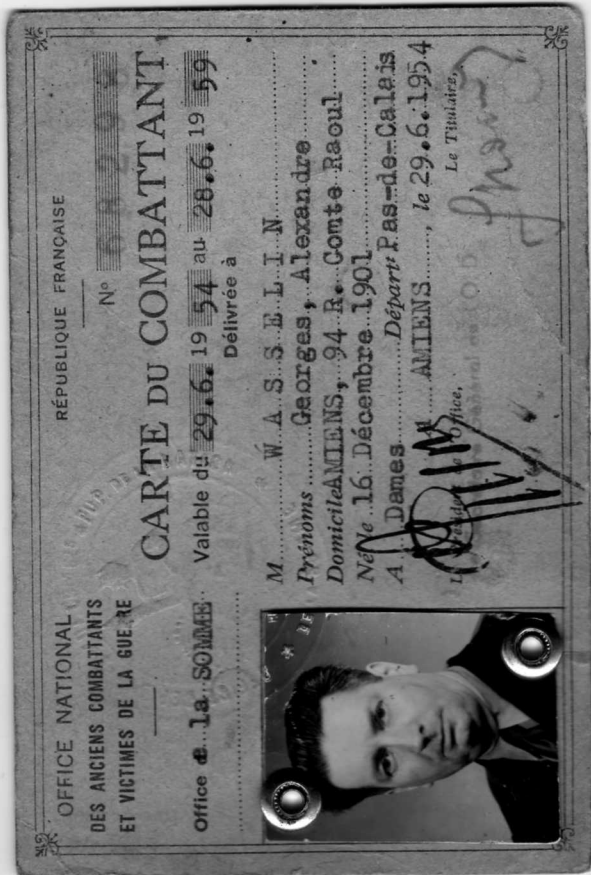 OFFICE NATIONAL
DES ANCIENS COMBATTANTS
ET VICTIMES DE LA GUERRE
Office de la SOMME
RÉPUBLIQUE FRANÇAISE
N°
CARTE DU COMBATTANT
Valable du 29.6.19 54 au 28.6.19 59
Délivrée à
M. WASSELIN
Prénoms Georges, Alexandre
Domicile AMIENS, 94 R. Comte Raoul
Né le 16 Décembre 1901
A Dames Départ Pas-de-Calais
AMIENS, le 29.6.1954
Le Titulaire,